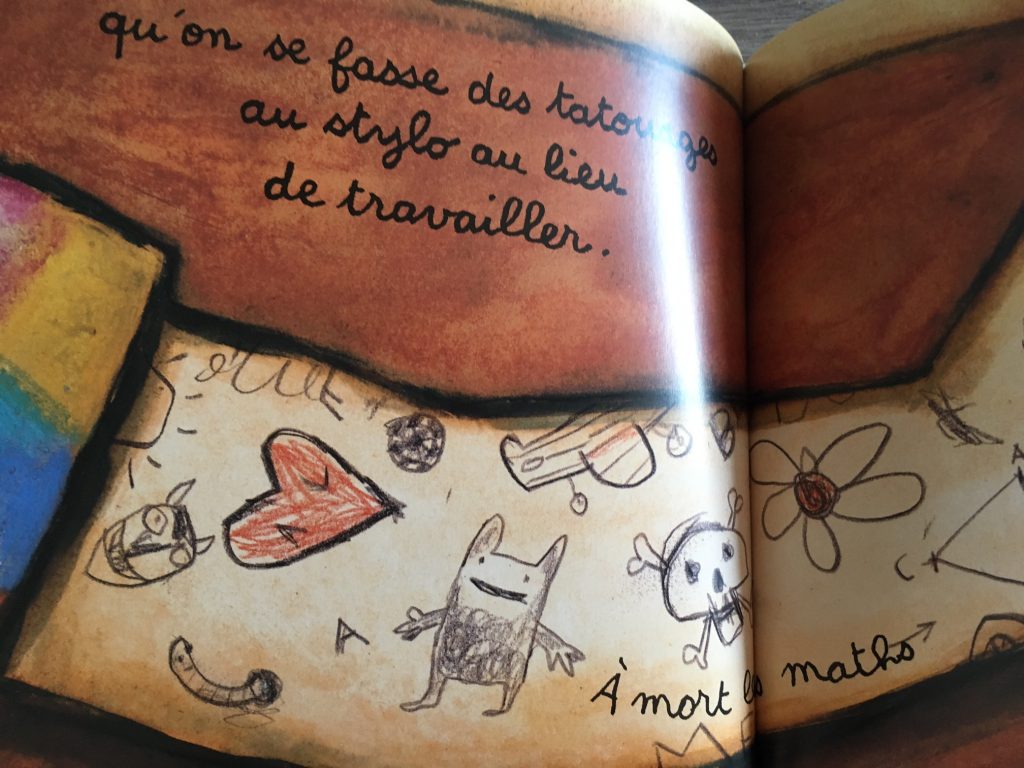 qu'on se fasse des tatouages
au stylo au lieu
de travailler.
A
À mort les maths